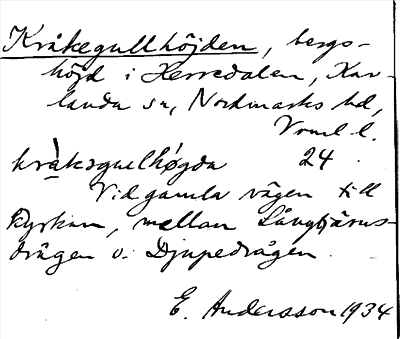 Kråkegullhöjden, bergs-
höjd i Herredalen, Kar-
landa sn, Nordmarks hd,
Vrml. l.
kràksgullhøgda 24.
Vid gamla vägen till
kyrkan, mellan Långtjärns-
drågen o. Djupedrågen.
E. Andersson 1934